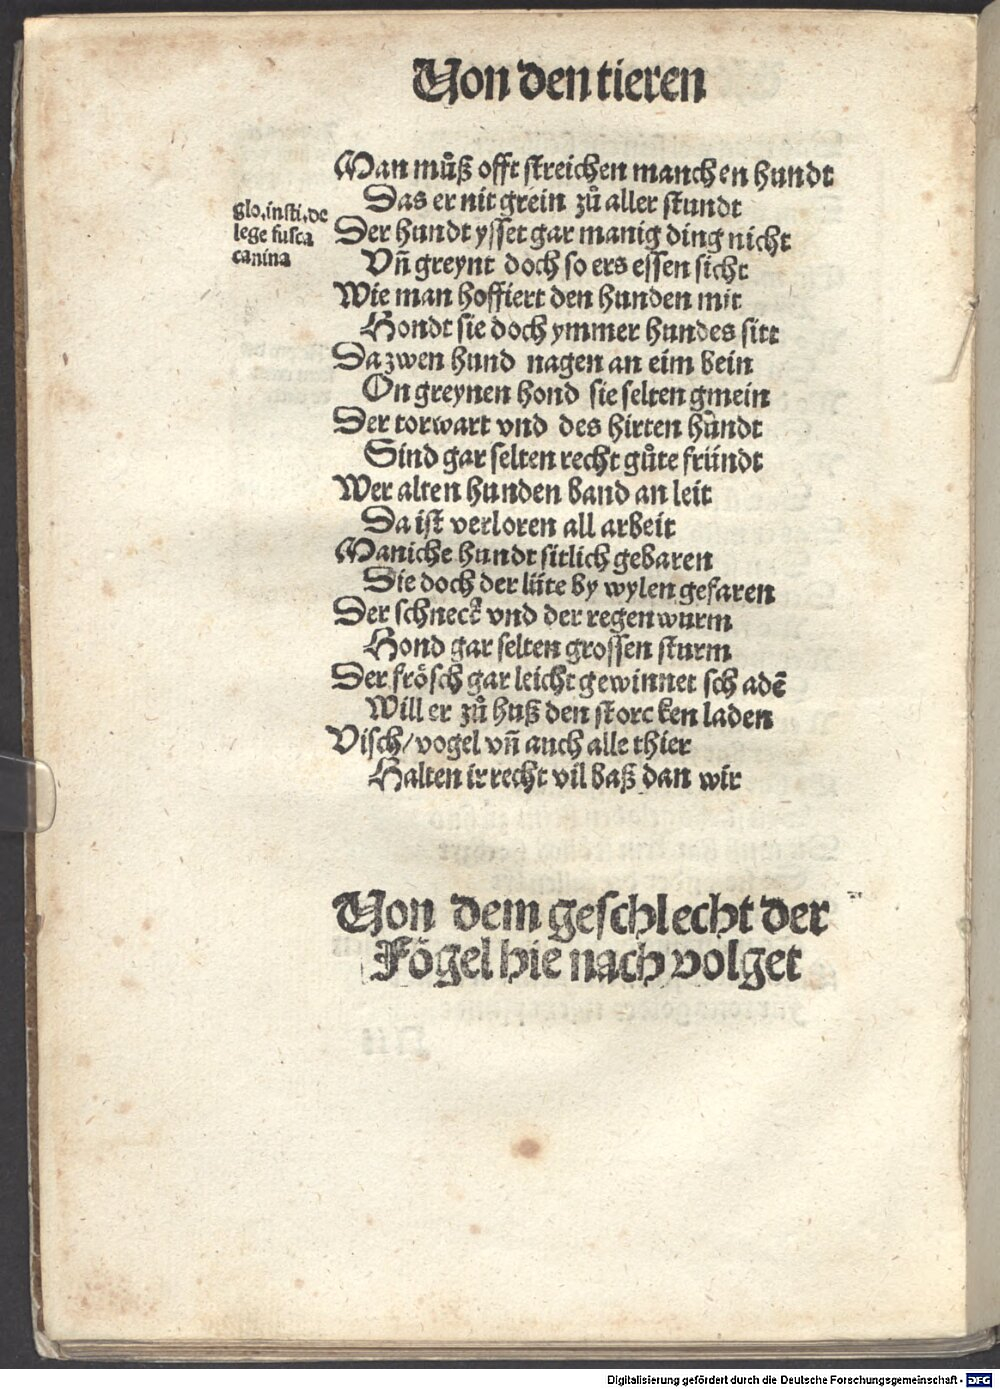 Von den tieren
Man muͦß offt streichen manchen hundt
Das er nit grein zuͦ aller stundt
glo. insti. de
lege fusca
canina
Der hundt ysset gar manig ding nicht
Vn̄ greynt doch so ers essen sicht
Wie man hoffiert den hunden mit
Hondt sie doch ymmer hundes sitt
Da zwen hund nagen an eim bein
On greynen hond sie selten gmein
Der torwart vnd des hirten hündt
Sind gar selten recht guͦte fründt
Wer alten hunden band an leit
Da ist verloren all arbeit
Maniche hundt sitlich gebaren
Die doch der lüte by wylen gefaren
Der schneck vnd der regenwurm
Hond gar selten grossen sturm
Der frösch gar leicht gewinnet schadē
Will er zuͦ huß den storcken laden
Visch/ vogel vn̄ auch alle thier
Halten ir recht vil baß dan wir
Von dem geschlecht der
Fögel hie nach volget
Digitalisierung gefördert durch die Deutsche Forschungsgemeinschaft - DFG